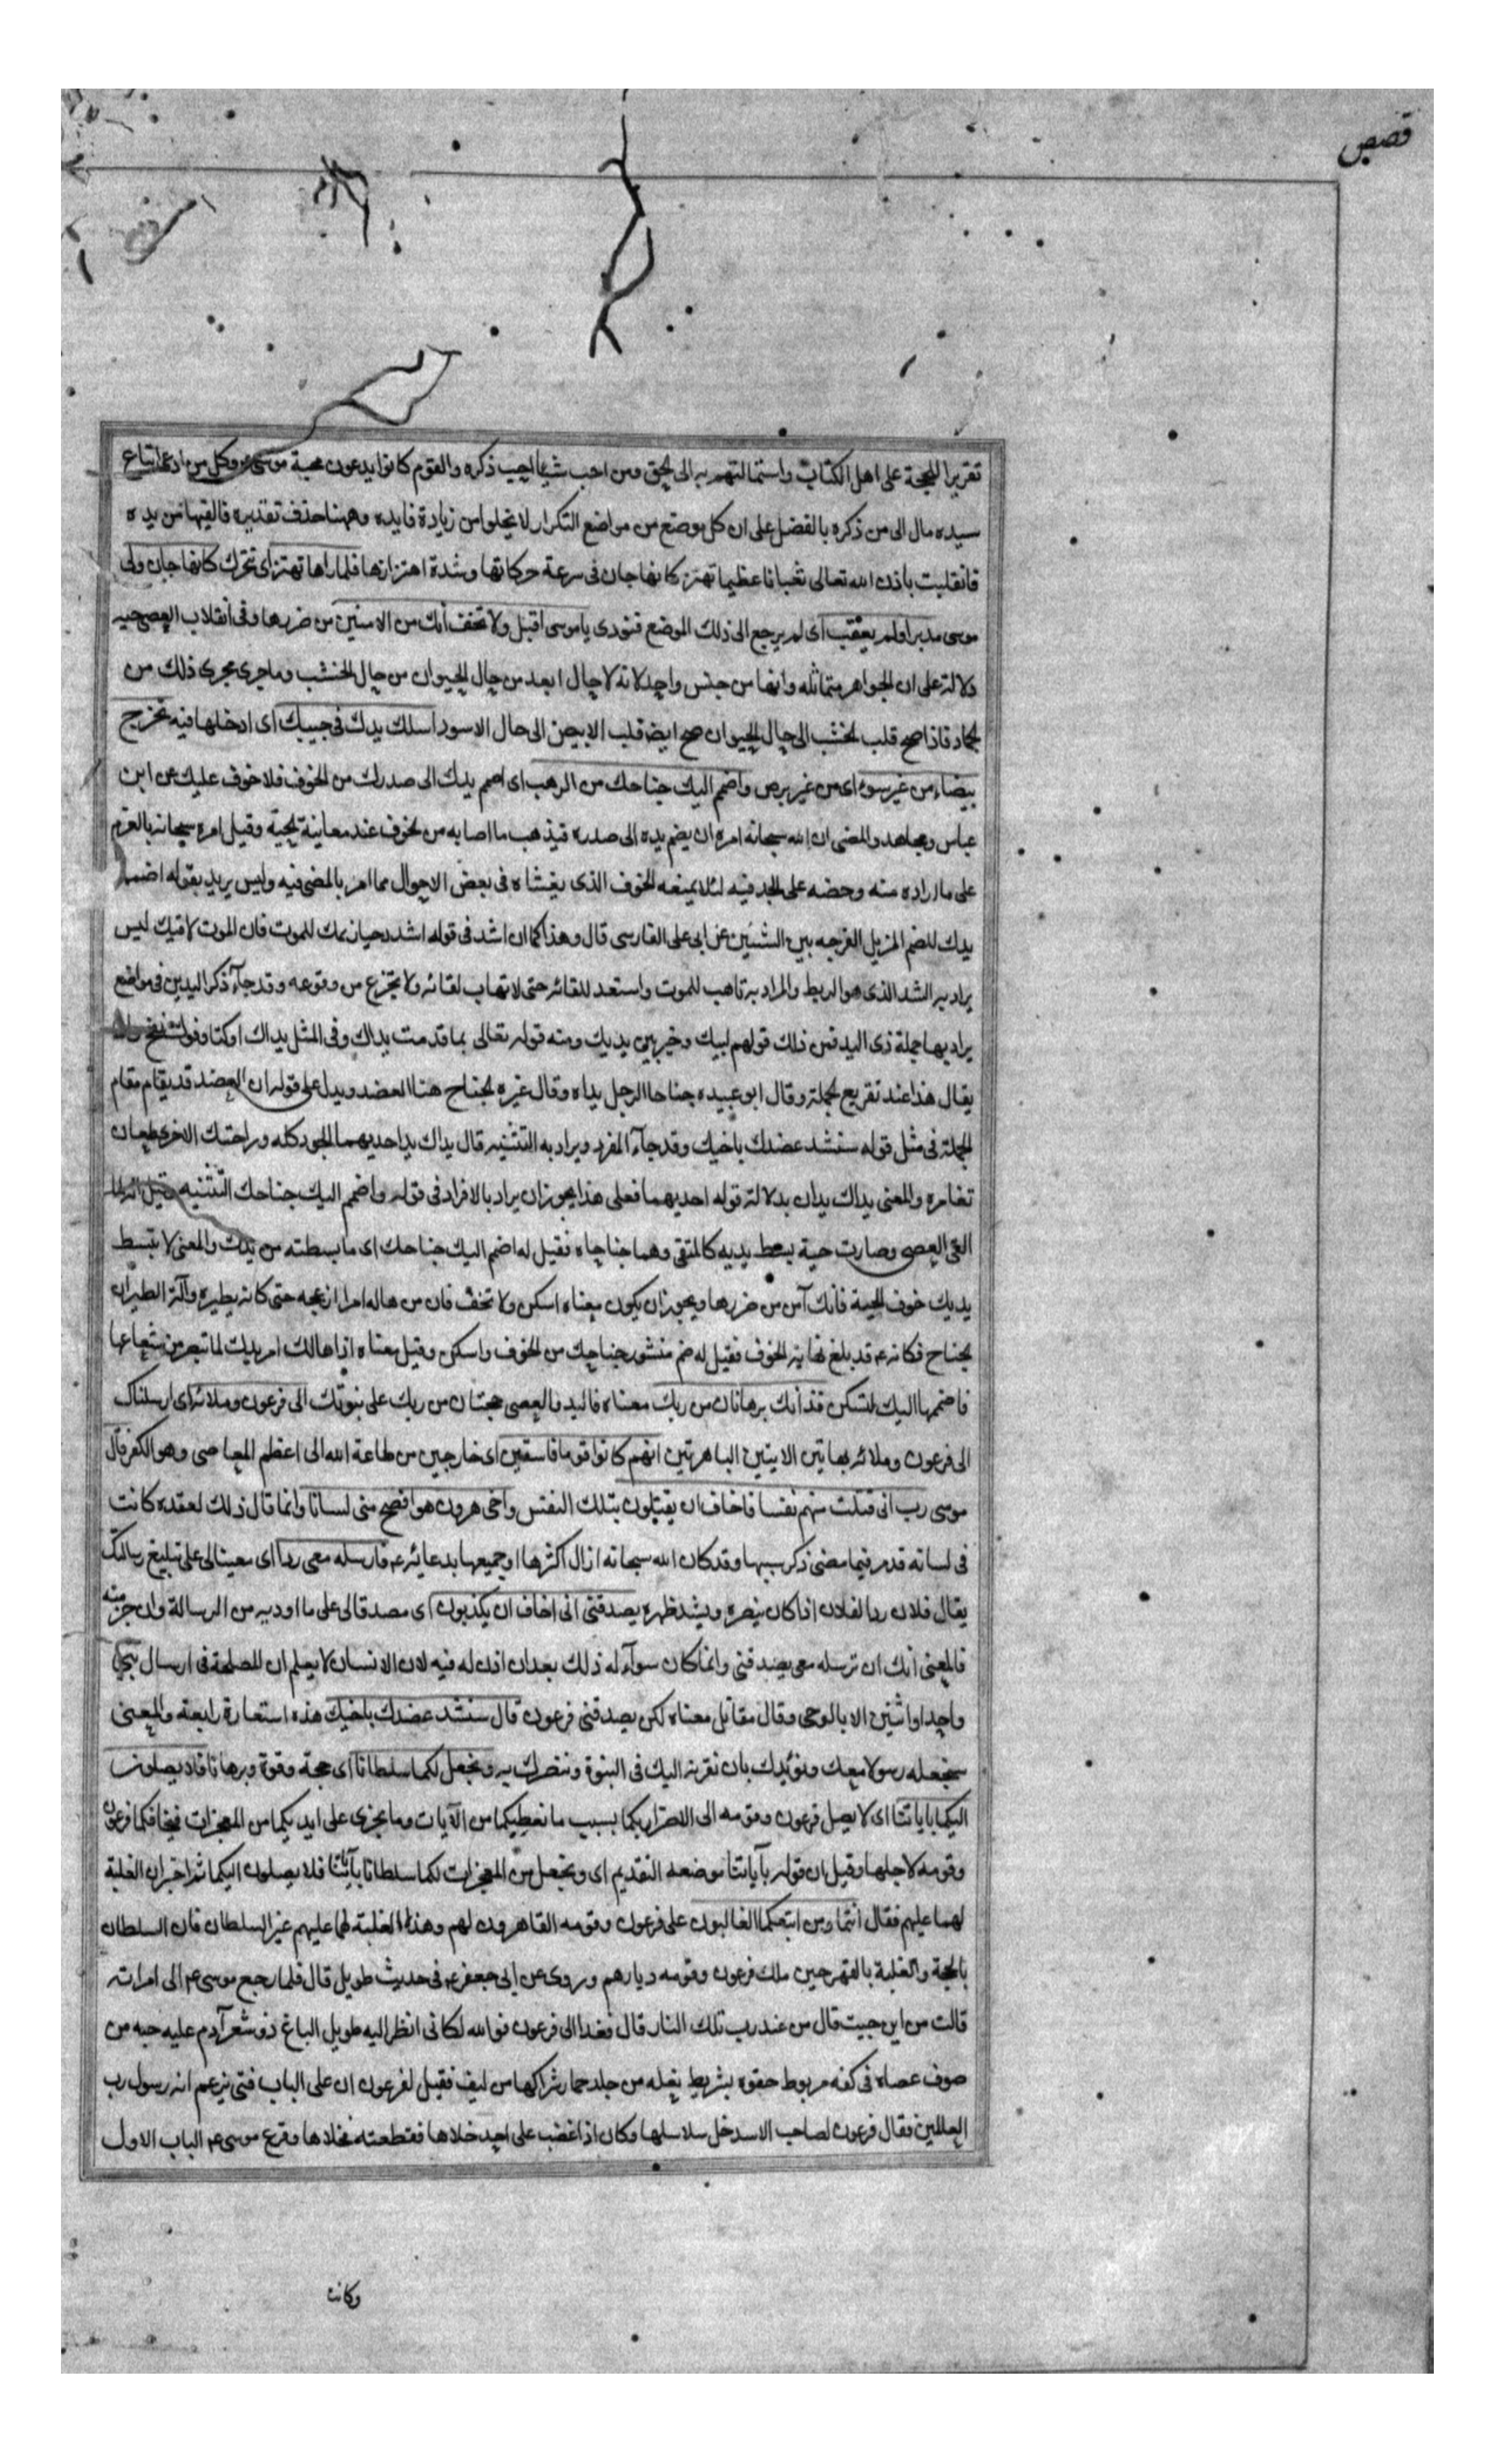 قصص
تقريرا للحجة على اهل الكتاب واستمالتهم به الى الحق ومن احب شيئا احب ذكره والقوم كانوا يدعون محبة موسى ع وكل من ادعى اتباع
سيده مال الى من ذكره بالفضل على ان كل موضع من مواضع التكرار لا يخلوا من زيادة فايده وههنا حذف تقديره فالقيها من يده
فانقلبت باذن الله تعالى ثعبانا عظيما تهتز كانها جان فى سرعة حركاتها وشدة اهتزازها فلما راها تهتز اى تتحرك كانها جان ولى
موسى مدبرا ولم يعقب اى لم يرجع الى ذلك الموضع فنودى يا موسى اقبل ولا تخف انك من الامنين من ضررها وفى انقلاب العصى حيه
دلالة على ان الجواهر متماثله وانها من جنس واحد لانه لا حال ابعد من حال الحيوان من حال الخشب وما جرى مجرى ذلك من
الجماد فاذا صح قلب الخشب الى حال الحيوان صح ايضا قلب الابيض الى حال الاسود اسلك يدك فى جيبك اى ادخلها فيه تخرج
بيضاء من غير سوء اى من غير برص واضمم اليك جناحك من الرهب اى اضمم يدك الى صدرك من الخوف فلا خوف عليك عن ابن
عباس ومجاهد والمعنى ان الله سبحانه امره ان يضم يده الى صدره فيذهب ما اصابه من الخوف عند معاينة الحية وقيل امره سبحانه بالعزم
على ما اراده منه وحضه على الجد فيه لئلا يمنعه الخوف الذى يغشاه فى بعض الاحوال مما امر بالمضى فيه وليس يريد بقوله اضمم
يدك للضم المزيل الفرجه بين الشيئين عن ابى على الفارسى قال وهذا كما ان اشد فى قوله اشدد حيازيمك للموت فان الموت لاقيك ليس
يراد به الشد الذى هو الربط والمراد به تاهب للموت واستعد للقائه حتى لا تهاب لقائه ولا تجزع من وقوعه وقد جآء ذكر اليدين فى مواضع
يراد بها جملة ذى اليد فمن ذلك قولهم لبيك وخير بين يديك ومنه قوله تعالى بما قدمت يداك وفى المثل يداك اوكتا وفوك نفخ وانما
يقال هذا عند تقريع الجملة وقال ابو عبيده جناحا الرجل يداه وقال غيره الجناح هنا العضد ويدل على قوله ان العضد قد يقام مقام
الجملة فى مثل قوله سنشد عضدك باخيك وقد جآء المفرد ويراد به التثنيه قال يداك يد احديهما الجود كله وراحتك الاخرى طعان
تغامره والمعنى يداك يدان بدلالة قوله احديهما فعلى هذا يجوز ان يراد بالافراد فى قوله واضمم اليك جناحك التثنيه وقيل انه لما
القى العصى وصارت حية بسط يديه كالمتقى وهما جناحاه فقيل له اضمم اليك جناحك اى ما بسطته من يديك والمعنى لا تبسط
يديك خوف الحية فانك آمن من ضررها ويجوز ان يكون معناه اسكن ولا تخف فان من هاله امر ازعجه حتى كانه يطيره وآلة الطيران
الجناح فكانه ع قد بلغ نهاية الخوف فقيل له ضم منشور جناحك من الخوف واسكن وقيل معناه اذا هالك امر يدك لما تبصر من شعاعها
فاضممها اليك لتسكن فذانك برهانان من ربك معناه فاليد والعصى حجتان من ربك على نبوتك الى فرعون وملائه اى ارسلناك
الى فرعون وملائه بهاتين الايتين الباهرتين انهم كانوا قوما فاسقين اى خارجين من طاعة الله الى اعظم المعاصى وهو الكفر قال
موسى رب انى قتلت منهم نفسا فاخاف ان يقتلون بتلك النفس واخى هرون هو افصح منى لسانا وانما قال ذلك لعقده كانت
فى لسانه قد مر فيما مضى ذكر سببها وقد كان الله سبحانه ازال اكثرها او جميعها بدعائه ع فارسله معى ردا اى معينا لى على تبليغ رسالتك
يقال فلان ردا لفلان اذا كان ينصره ويشد ظهره يصدقنى انى اخاف ان يكذبون اى مصدقا لى على ما اوديه من الرسالة وان جزمته
فالمعنى انك ان ترسله معى يصدقنى وانما كان سوآله ذلك بعد ان اذن له فيه لان الانسان لا يعلم ان المصلحة فى ارسال نبى
واحد او اثنين الا بالوحى وقال مقاتل معناه لكى يصدقنى فرعون قال سنشد عضدك باخيك هذه استعارة رابعة والمعنى
سنجعله رسولا معك ونؤيدك بان نقرنه اليك فى النبوة وننصرك به ونجعل لكما سلطانا اى حجة وقوة وبرهانا فلا يصلون
اليكما باياتنا اى لا يصل فرعون وقومه الى الاضرار بكما بسبب ما نعطيكما من الآيات وما يجرى على ايديكما من المعجزات فيخافكما فرعون
وقومه لاجلها وقيل ان قوله بآياتنا موضعه التقديم اى ونجعل من المعجزات لكما سلطانا بآياتنا فلا يصلون اليكما ثم اخبر ان الغلبة
لهما عليهم فقال انتما ومن اتبعكما الغالبون على فرعون وقومه القاهرون لهم وهذا الغلبة لهما عليهم غير السلطان فان السلطان
بالحجة والغلبة بالقهر حين ملك فرعون وقومه ديارهم وروى عن ابى جعفر ع فى حديث طويل قال فلما رجع موسى ع الى امراته
قالت من اين جيت قال من عند رب تلك النار قال فغدا الى فرعون فو الله لكانى انظر اليه طويل الباع ذو شعر آدم عليه جبه من
صوف عصاه فى كفه مربوط حقوه بشريط نعله من جلد حمار شراكها من ليف فقيل لفرعون ان على الباب فتى يزعم انه رسول رب
العالمين فقال فرعون لصاحب الاسد خل سلاسلها وكان اذا غضب على احد خلاها فقطعته فخلاها وقرع موسى ع الباب الاول
وكانت